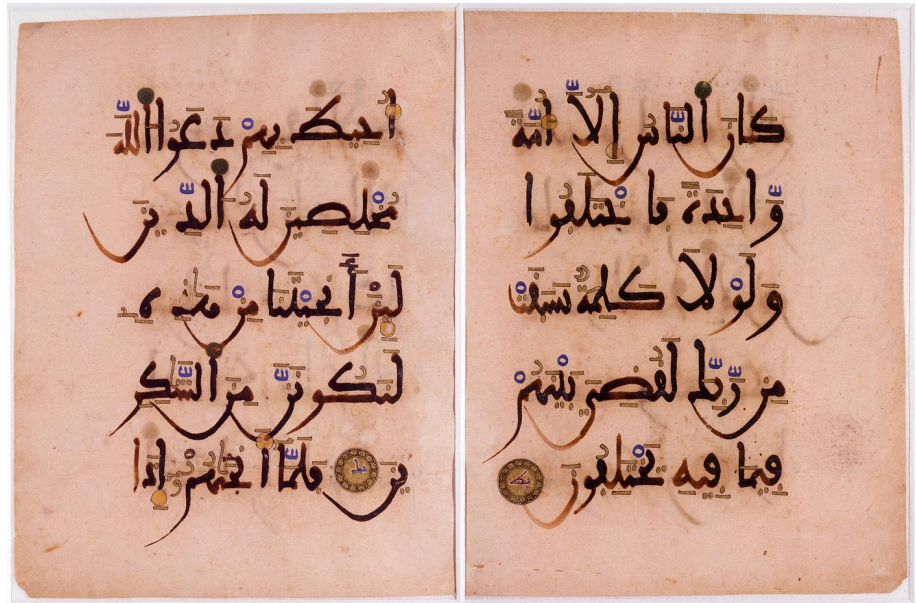 كان الناس إلا أمة
واحدة فاختلفوا
ولولا كلمة سبقت
من ربك لقضي بينهم
فيما فيه يختلفون
أحيط بهم دعوا الله
مخلصين له الدين
لئن أنجيتنا من هذه
لنكونن من الشكر
ين فلما أنجيهم إذا